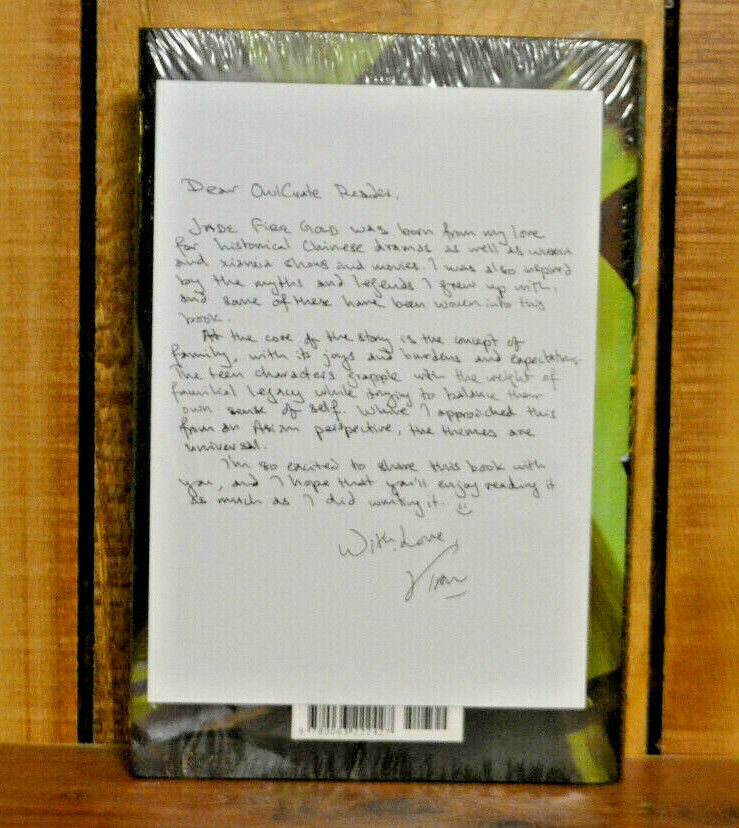 Dear OwlCrate Reader,
JADE FIRE GOLD was born from my love
for historical Chinese dramas as well as wuxia
and xianxia shows and movies. I was also inspired
by the myths and legends I grew up with,
and some of these have been woven into this
book.
At the core of the story is the concept of
family, with its joys and burdens and expectations.
The teen characters grapple with the weight of
familial legacy while trying to balance their
own sense of self. While I approached this
from an Asian perspective, the themes are
universal.
I'm so excited to share this book with
you, and I hope that you'll enjoy reading it
as much as I did writing it. :)
With Love,